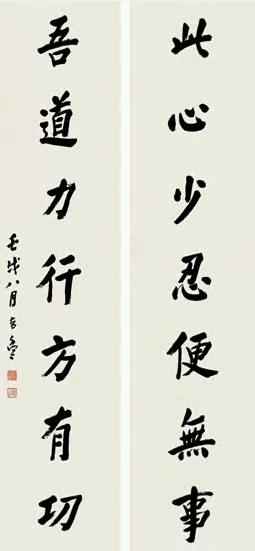 此心少忍便無事
吾道力行方有功
壬戌八月